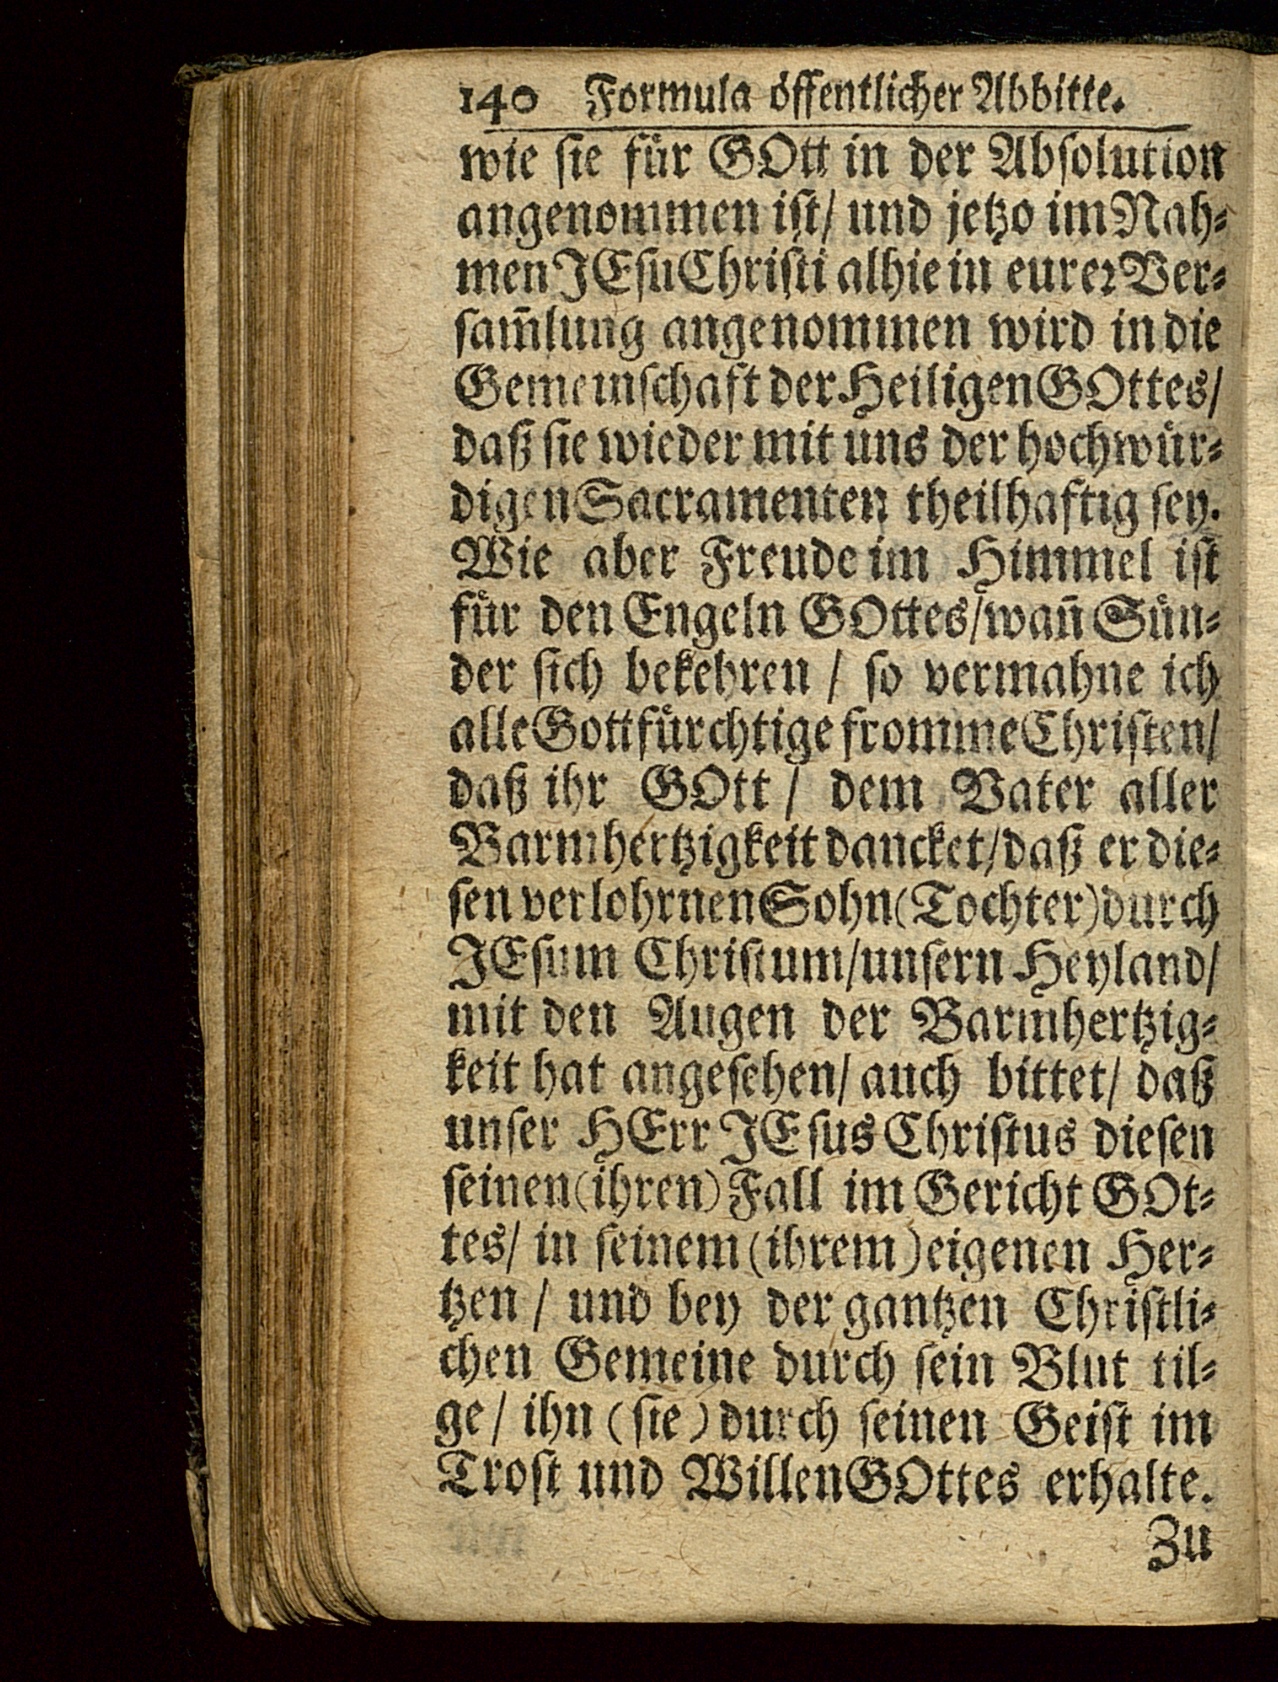 140 Formula öffentlicher Abbitte.
wie sie für GOtt in der Absolution
angenommen ist/ und jetzo im Nah⸗
men JEsu Christi alhie in eurer Ver⸗
sam̃lung angenommen wird in die
Gemeinschaft der Heiligen GOttes/
daß sie wieder mit uns der hochwür⸗
digen Sacramenten theilhaftig sey.
Wie aber Freude im Himmel ist
für den Engeln GOttes/ wañ Sün⸗
der sich bekehren / so vermahne ich
alle Gottfürchtige fromme Christen/
daß ihr GOtt / dem Vater aller
Barmhertzigkeit dancket/ daß er die⸗
sen verlohrnen Sohn (Tochter) durch
JEsum Christum/ unsern Heyland/
mit den Augen der Barmhertzig⸗
keit hat angesehen/ auch bittet/ daß
unser HErr JEsus Christus diesen
seinen (ihren) Fall im Gericht GOt⸗
tes/ in seinem (ihrem) eigenen Her⸗
tzen / und bey der gantzen Christli⸗
chen Gemeine durch sein Blut til⸗
ge/ ihn (sie) durch seinen Geist im
Trost und Willen GOttes erhalte.
Zu